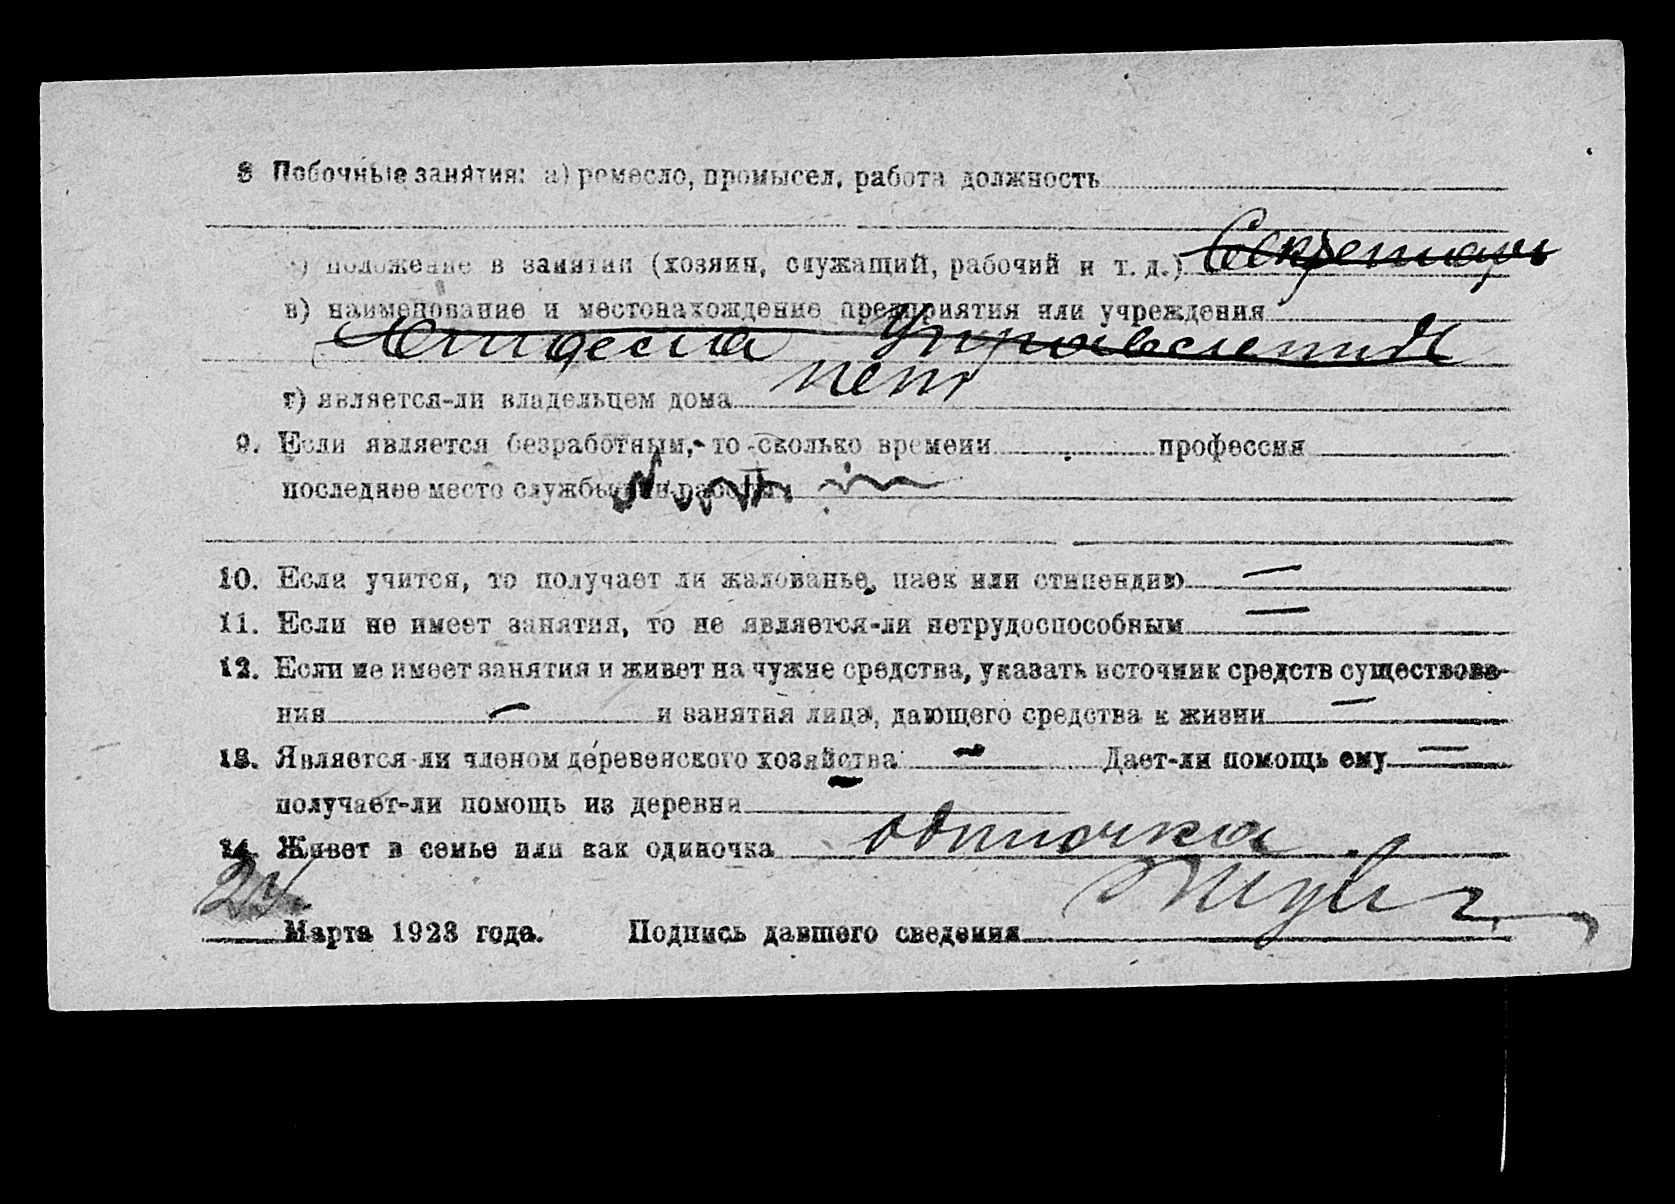 8 Побочные занятия: а) ремесло, промысел, работа должность
б) положение в занятии (хозяин, служащий, рабочий и т. д.) Секретарь
в) наименование и местонахождение предприятия или учреждения
отдела Управления
г) является-ли владельцем дома нет
9. Если является безработным, то сколько времени профессия
последнее место службы или работы
10. Если учится, то получает ли жалованье, паек или стипендию —
11. Если не имеет занятия, то не является-ли нетрудоспособным —
12. Если не имеет занятия и живет на чужие средства, указать источник средств существова-
ния — и занятия лица, дающего средства к жизни —
13. Является-ли членом деревенского хозяйства — Дает-ли помощь ему —
получает-ли помощь из деревни —
14. Живет в семье или как одиночка одиночка
24 Марта 1923 года. Подпись давшего сведения